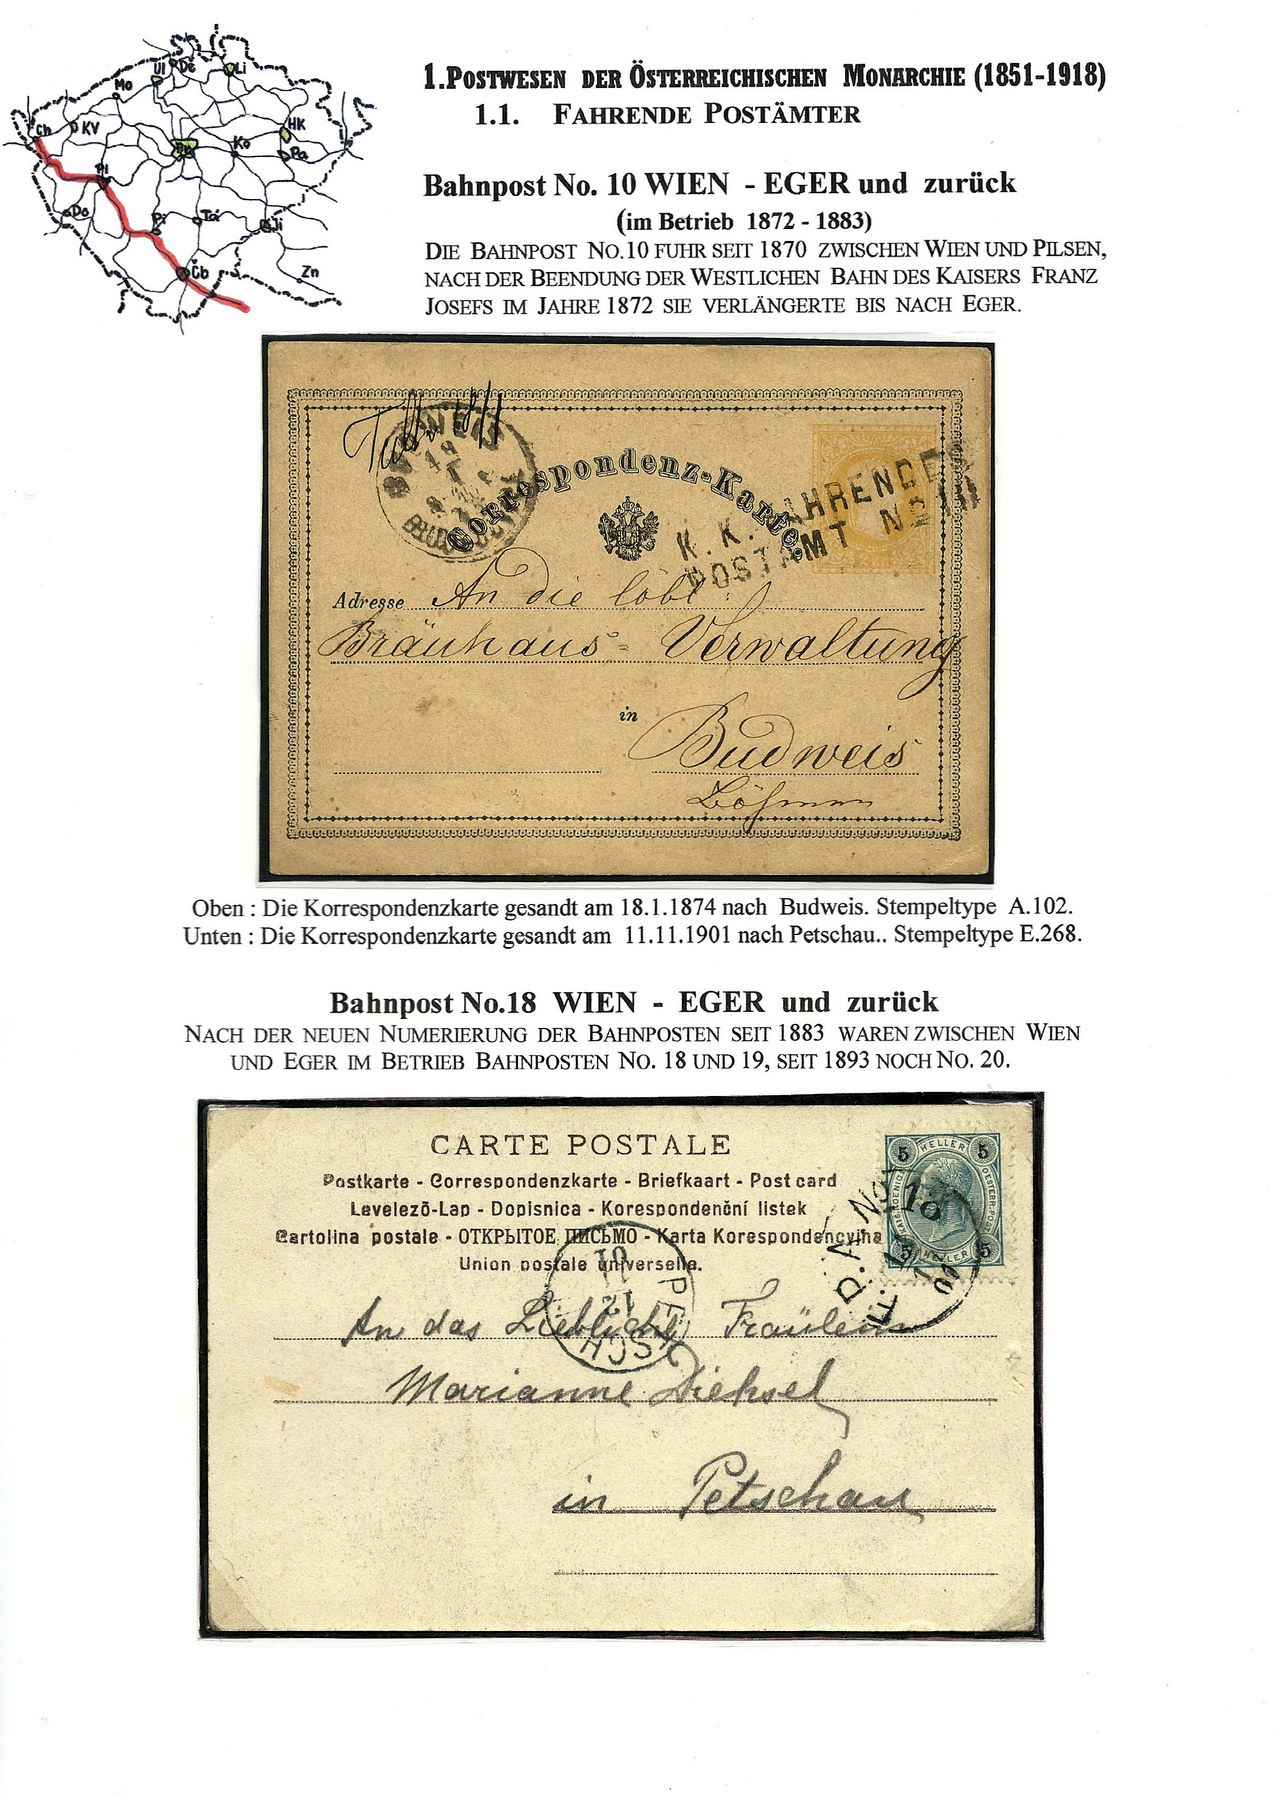 Ul
De
Li
Mo
Ch
KV
HK
Ko
Pa
Pl
Do
Pi
Tá
Ji
Čb
Zn
1.POSTWESEN DER ÖSTERREICHISCHEN MONARCHIE (1851-1918)
1.1. FAHRENDE POSTÄMTER
Bahnpost No. 10 WIEN - EGER und zurück
(im Betrieb 1872 - 1883)
DIE BAHNPOST NO.10 FUHR SEIT 1870 ZWISCHEN WIEN UND PILSEN,
NACH DER BEENDUNG DER WESTLICHEN BAHN DES KAISERS FRANZ
JOSEFS IM JAHRE 1872 SIE VERLÄNGERTE BIS NACH EGER.
BUDWEIS
Correspondenz-Karte.
K. K. FAHRENDES
POSTAMT No 10
Adresse An die löbl:
Bräuhaus= Verwaltung
in Budweis
Böhmen
Oben : Die Korrespondenzkarte gesandt am 18.1.1874 nach Budweis. Stempeltype A.102.
Unten : Die Korrespondenzkarte gesandt am 11.11.1901 nach Petschau.. Stempeltype E.268.
Bahnpost No.18 WIEN - EGER und zurück
NACH DER NEUEN NUMERIERUNG DER BAHNPOSTEN SEIT 1883 WAREN ZWISCHEN WIEN
UND EGER IM BETRIEB BAHNPOSTEN NO. 18 UND 19, SEIT 1893 NOCH NO. 20.
CARTE POSTALE
Postkarte - Correspondenzkarte - Briefkaart - Post card
Levelező-Lap - Dopisnica - Korespondenční listek
Cartolina postale - ОТКРЫТОЕ ПИСЬМО - Karta Korespondencyjna
Union postale universelle.
5 HELLER 5
5 HELLER 5
PETSCH
12
01
An das Liebliche Fräulein
Marianne Dieksel
in Petschau